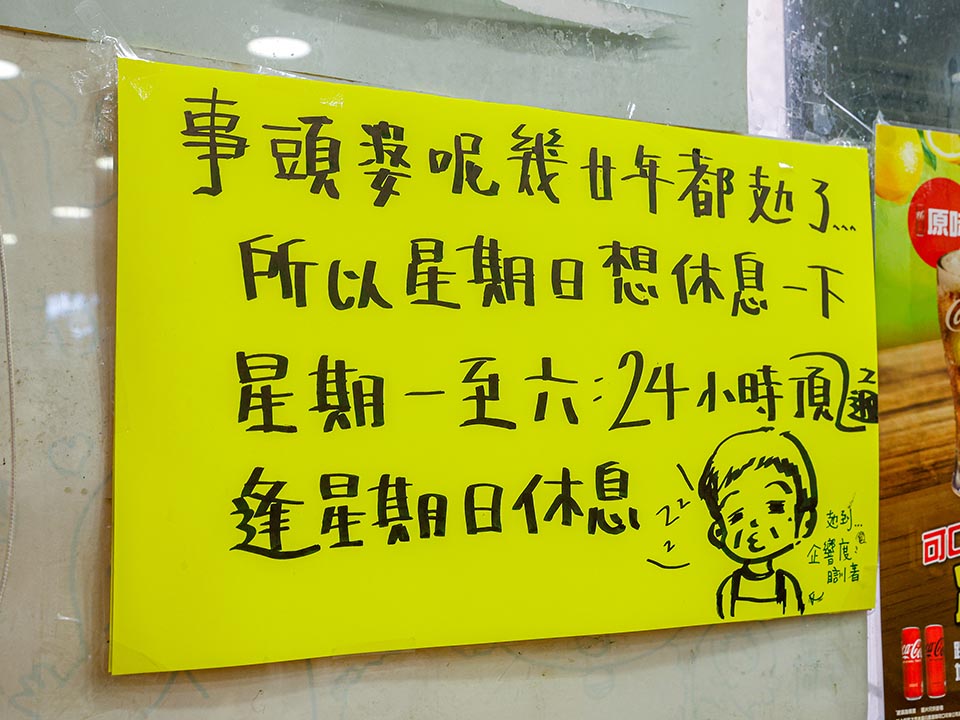 事頭婆呢幾廿年都攰了...
所以星期日想休息一下
星期一至六:24小時頂
逢星期日休息
zzz
攰到...
企響度
瞓着
原味
可口
Coca-Cola